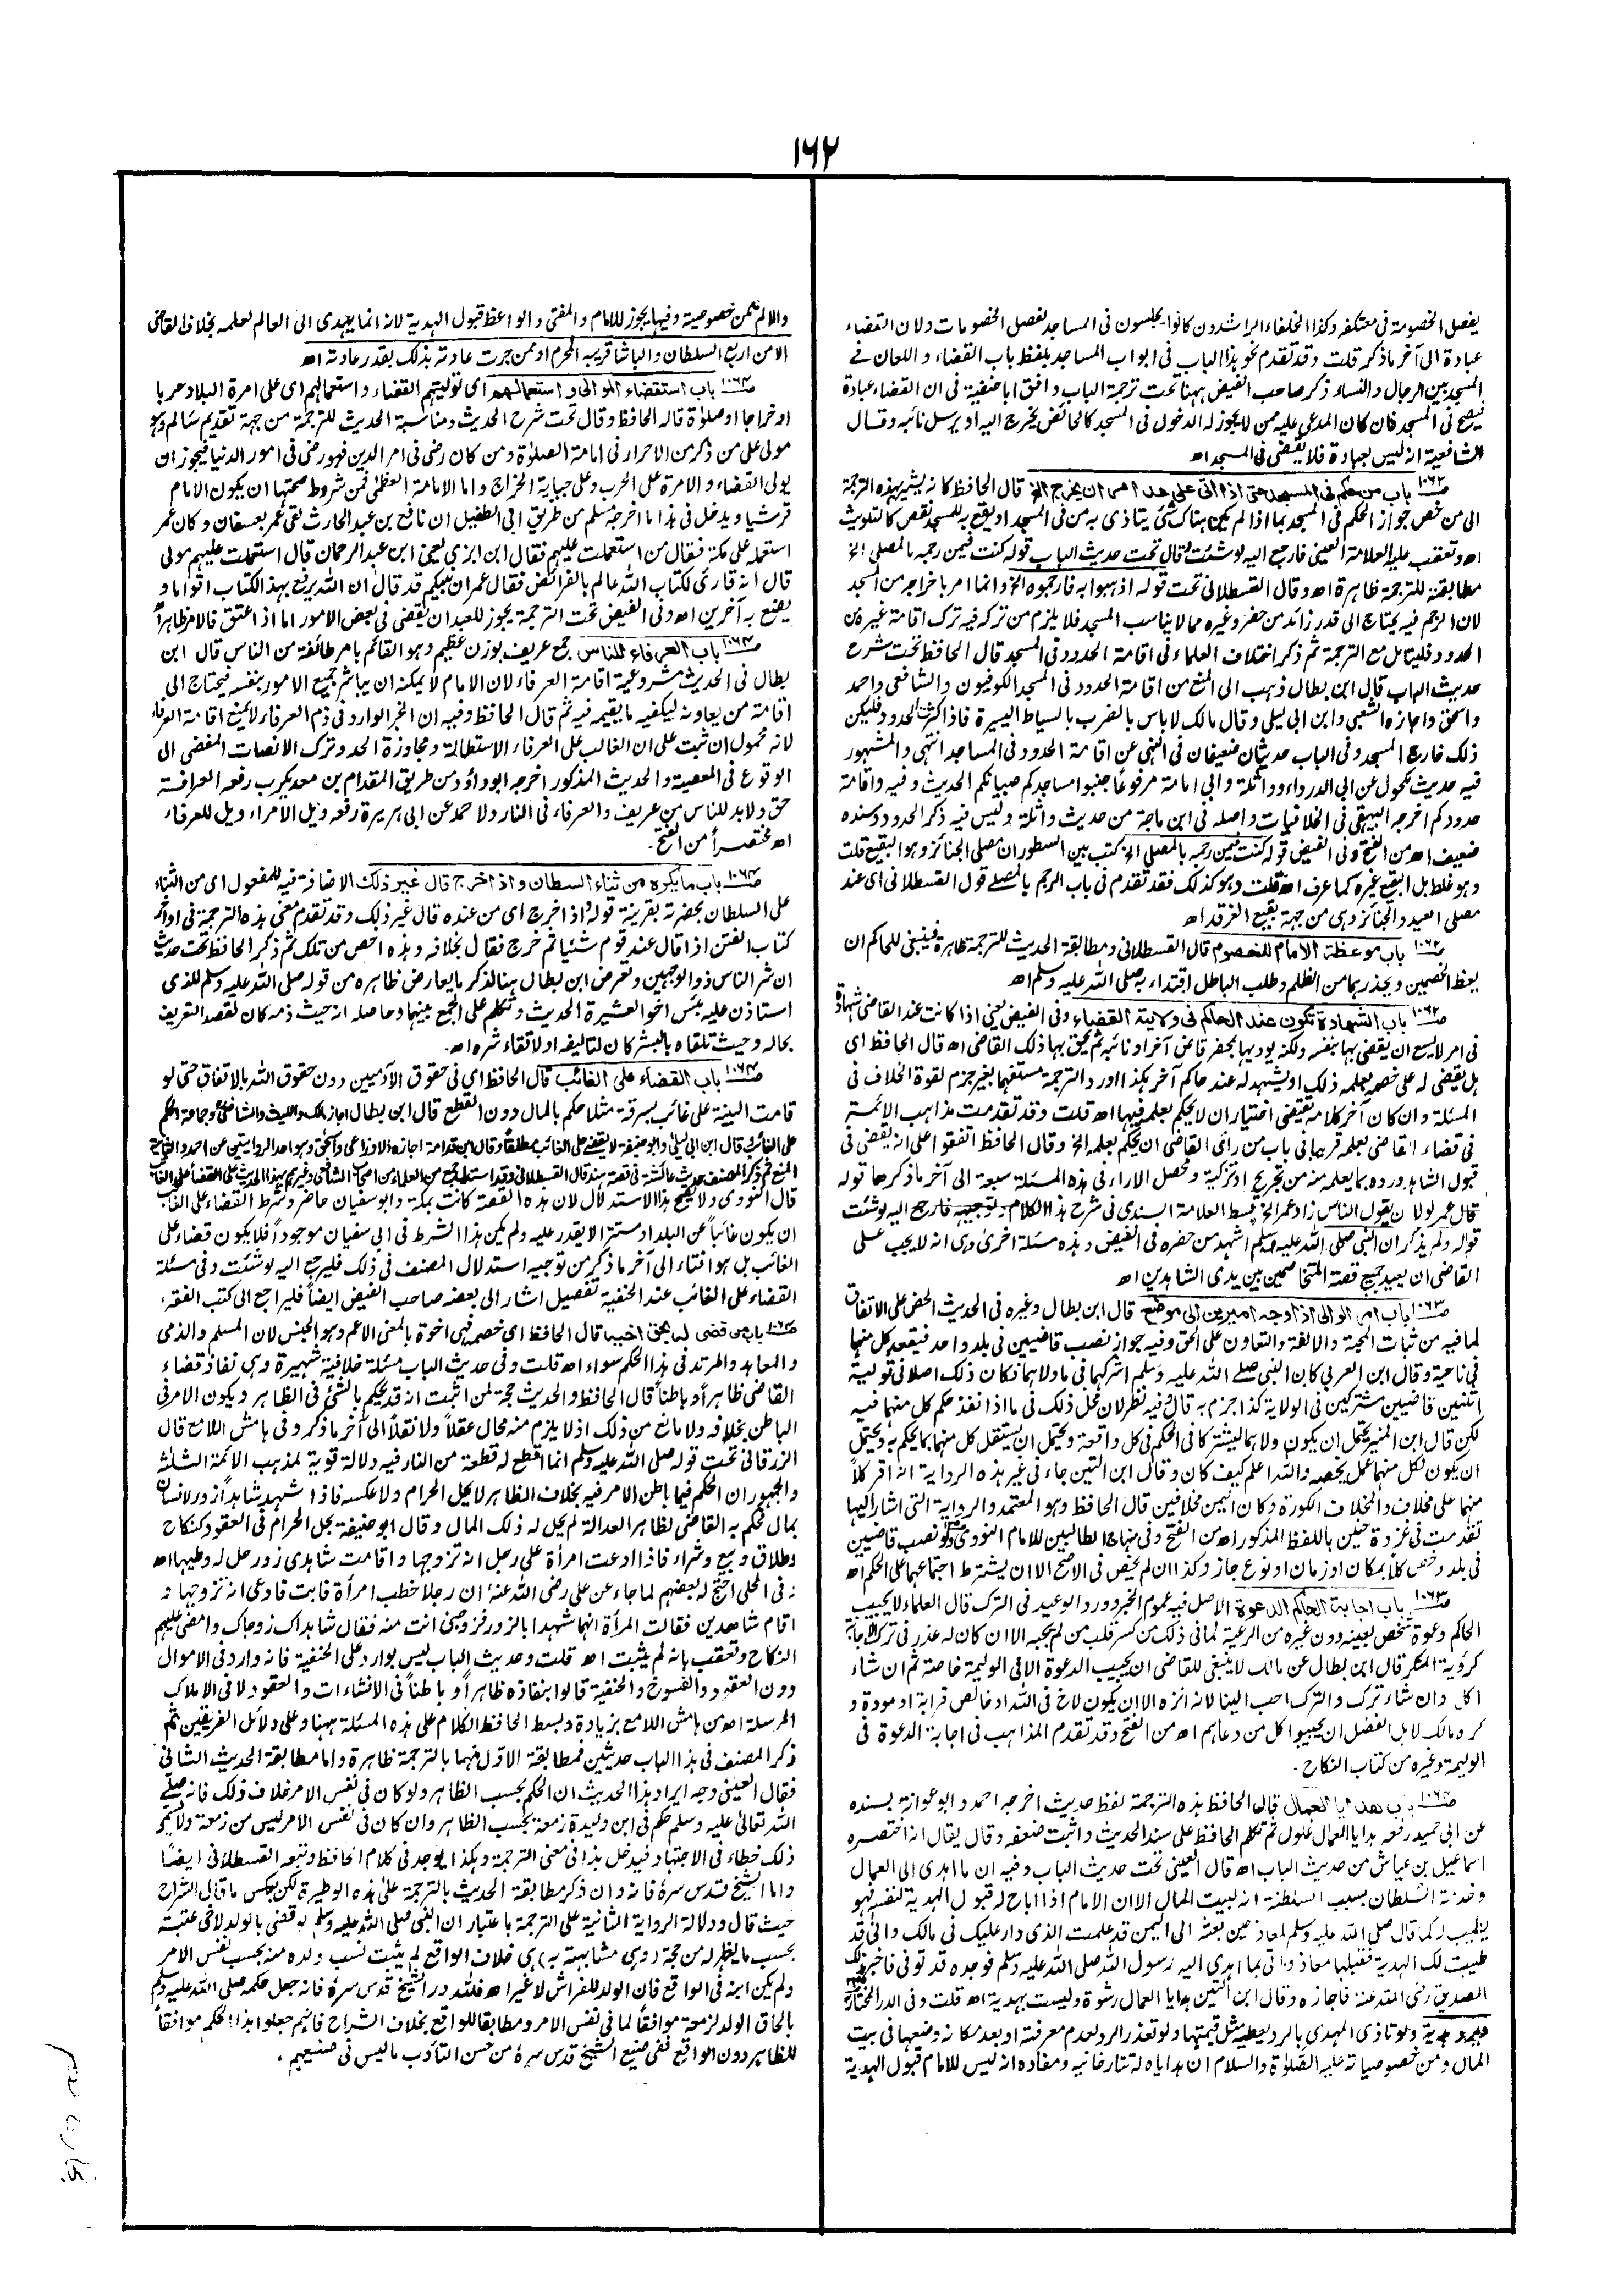 ١٦٢
يفصل الخصومة فى معتكفه وكذا الخلفاء الراشدون كانوا يجلسون فى المساجد لفصل الخصومات ولان القضاء
عبادة الى آخر ما ذكر قلت وقد تقدم نحو هذا الباب فى ابواب المساجد بلفظ باب القضاء واللعان فى
المسجد بين الرجال والنساء ذكر صاحب الفيض ههنا تحت ترجمة الباب وافق ابا حنيفة فى ان القضاء عبادة
فيصح فى المسجد فان كان المدعى عليه ممن لا يجوز له الدخول فى المسجد كالحائض يخرج اليه او يرسل نائبه وقال
الشافعية انه ليس بعبادة فلا يقضى فى المسجد اھ
ص١٠٦٢ باب من حكم فى المسجد حتى اذا اتى على حد امر ان يخرج الخ قال الحافظ كانه يشير بهذه الترجمة
الى من خص جواز الحكم فى المسجد بما اذا لم يكن هناك شئ يتاذى به من فى المسجد او يقع به للمسجد نقص كالتلويث
اھ وتعقب عليه العلامة العينى فارجع اليه لو شئت وقال تحت حديث الباب قوله كنت فيمن رجمه بالمصلى الخ
مطابقته للترجمة ظاهرة اھ وقال القسطلانى تحت قوله اذهبوا به فارجموه الخ وانما امر باخراجه من المسجد
لان الرجم فيه يحتاج الى قدر زائد من حفر وغيره مما لا يناسب المسجد فلا يلزم من تركه فيه ترك اقامة غيره من
الحدود فليتامل مع الترجمة ثم ذكر اختلاف العلماء فى اقامة الحدود فى المسجد قال الحافظ تحت شرح
حديث الباب قال ابن بطال ذهب الى المنع من اقامة الحدود فى المسجد الكوفيون والشافعى واحمد
واسحق واجازه الشعبى وابن ابى ليلى وقال مالك لا باس بالضرب بالسياط اليسيرة فاذا كثرت الحدود فليكن
ذلك خارج المسجد وفى الباب حديثان ضعيفان فى النهى عن اقامة الحدود فى المساجد انتهى والمشهور
فيه حديث مكحول عن ابى الدرداء وواثلة وابى امامة مرفوعا جنبوا مساجدكم صبيانكم الحديث وفيه واقامة
حدودكم اخرجه البيهقى فى الخلافيات واصله فى ابن ماجة من حديث واثلة وليس فيه ذكر الحدود وسنده
ضعيف اھ من الفتح وفى الفيض قوله كنت فيمن رجمه بالمصلى الخ كتب بين السطور ان مصلى الجنائز وهو البقيع قلت
وهو غلط بل البقيع غيره كما عرف اھ قلت وهو كذلك فقد تقدم فى باب الرجم بالمصلى قول القسطلانى اى عند
مصلى العيد والجنائز وهى من جهة بقيع الغرقد اھ
ص١٠٦٢ باب موعظة الامام للخصوم قال القسطلانى ومطابقة الحديث للترجمة ظاهرة فينبغى للحاكم ان
يعظ الخصمين ويحذرهما من الظلم وطلب الباطل اقتداء به صلى الله عليه وسلم اھ
ص١٠٦٢ باب الشهادة تكون عند الحاكم فى ولاية القضاء وفى الفيض يعنى اذا كانت عند القاضى شهادة
فى امر لا يسع ان يقضى بها بنفسه ولكنه يوديها بحضر قاض آخر او نائبه ثم يحق بها ذلك القاضى اھ قال الحافظ اى
هل يقضى له على خصمه بعلمه ذلك او يشهد له عند حاكم آخر هكذا اورد الترجمة مستفهما بغير جزم لقوة الخلاف فى
المسئلة وان كان آخر كلامه يقتضى اختيار ان لا يحكم بعلمه فيها اھ قلت وقد تقدمت مذاهب الائمة
فى قضاء القاضى بعلمه قريبا فى باب من رأى القاضى ان يحكم بعلمه الخ وقال الحافظ اتفقوا على انه يقضى فى
قبول الشاهد ورده بما يعلمه منه من تجريح او تزكية ومحصل الاراء فى هذه المسئلة سبعة الى آخر ما ذكرها قوله
قال عمر لولا ان يقول الناس زاد عمر الخ بسط العلامة السندى فى شرح هذا الكلام وتوجيهه فارجع اليه لو شئت
قوله ولم يذكر ان النبى صلى الله عليه وسلم اشهد من حضره فى الفيض وهذه مسئلة اخرى وهى انه لا يجب على
القاضى ان يعيد جميع قصة المتخاصمين بين يدى الشاهدين اھ
ص١٠٦٣ باب امر الوالى اذا وجه اميرين الى موضع قال ابن بطال وغيره فى الحديث الحض على الاتفاق
لما فيه من ثبات المحبة والالفة والتعاون على الحق وفيه جواز نصب قاضيين فى بلد واحد فيقعد كل منهما
فى ناحية وقال ابن العربى كان النبى صلى الله عليه وسلم اشركهما فى ما ولاهما فكان ذلك اصلا فى تولية
اثنين قاضيين مشتركين فى الولاية كذا جزم به قال وفيه نظر لان محل ذلك فى ما اذا نفذ حكم كل منهما فيه
لكن قال ابن المنير يحتمل ان يكون ولاهما ليشتركا فى الحكم فى كل واقعة ويحتمل ان يستقل كل منهما بما يحكم به ويحتمل
ان يكون لكل منهما عمل يخصه والله اعلم كيف كان وقال ابن التين جاء فى غير هذه الرواية انه اقر كلاً
منهما على مخلاف والمخلاف الكورة وكان اليمن مخلافين قال الحافظ وهو المعتمد والرواية التى اشار اليها
تقدمت فى غزوة حنين باللفظ المذكور اھ من الفتح وفى منهاج الطالبين للامام النووى ولو نصب قاضيين
فى بلد وخص كلا بمكان او زمان او نوع جاز وكذا ان لم يخص فى الاصح الا ان يشترط اجتماعهما على الحكم اھ
ص١٠٦٣ باب اجابة الحاكم الدعوة الاصل فيه عموم الخبر وورد الوعيد فى الترك قال العلماء لا يجيب
الحاكم دعوة شخص بعينه دون غيره من الرعية لما فى ذلك من كسر قلب من لم يجبه الا ان كان له عذر فى ترك الاجابة
كرؤية المنكر قال ابن بطال عن مالك لا ينبغى للقاضى ان يجيب الدعوة الا فى الوليمة خاصة ثم ان شاء
اكل وان شاء ترك والترك احب الينا لانه انزه الا ان يكون لاخ فى الله او خالص قرابة او مودة و
كره مالك لاهل الفضل ان يجيبوا كل من دعاهم اھ من الفتح وقد تقدم المذاهب فى اجابة الدعوة فى
الوليمة وغيره من كتاب النكاح۔
ص١٠٦٤ باب هدايا العمال قال الحافظ هذه الترجمة لفظ حديث اخرجه احمد وابو عوانة بسنده
عن ابى حميد رفعه هدايا العمال غلول ثم تكلم الحافظ على سند الحديث واثبت ضعفه وقال يقال انه اختصره
اسماعيل بن عياش من حديث الباب اھ قال العينى تحت حديث الباب وفيه ان ما اهدى الى العمال
وخدمة السلطان بسبب السلطنة انه لبيت المال الا ان الامام اذا اباح له قبول الهدية لنفسه فهو
يطيب له كما قال صلى الله عليه وسلم لمعاذ حين بعثه الى اليمن قد علمت الذى دار عليك فى مالك وانى قد
طيبت لك الهدية فقبلها معاذ واتى بما اهدى اليه رسول الله صلى الله عليه وسلم فوجده قد توفى فاخبر بذلك
الصديق رضى الله عنه فاجازه وقال ابن التين هدايا العمال رشوة وليست بهدية اھ قلت وفى الدر المختار
هدية ولو تاذى المهدى بالرد يعطيه مثل قيمتها ولو تعذر الرد لعدم معرفته او بعد مكانه وضعها فى بيت
المال ومن خصوصياته عليه الصلوٰة والسلام ان هداياه له تتارخانيه ومفاده انه ليس للامام قبول الهدية
والا لم تكن خصوصية وفيها يجوز للامام والمفتى والواعظ قبول الهدية لانه انما يهدى الى العالم لعلمه بخلاف القاضى
الا من اربع السلطان والباشا قريبه المحرم او ممن جرت عادته بذلك بقدر عادته اھ
ص١٠٦٤ باب استقضاء الموالى واستعمالهم اى توليتهم القضاء واستعمالهم اى على امرة البلاد حربا
او خراجا او صلوٰة قاله الحافظ وقال تحت شرح الحديث ومناسبة الحديث للترجمة من جهة تقديم سالم وهو
مولى على من ذكر من الاحرار فى امامة الصلوٰة ومن كان رضى فى امر الدين فهو رضى فى امور الدنيا فيجوز ان
يولى القضاء والامرة على الحرب وعلى جباية الخراج واما الامامة العظمى فمن شروط صحتها ان يكون الامام
قرشيا ويدخل فى هذا ما اخرجه مسلم من طريق ابى الطفيل ان نافع بن عبد الحارث لقى عمر بعسفان وكان عمر
استعمله على مكة فقال من استعملت عليهم فقال ابن ابزى يعنى ابن عبد الرحمان قال استعملت عليهم مولى
قال انه قارئ لكتاب الله عالم بالفرائض فقال عمر ان نبيكم قد قال ان الله يرفع بهذا الكتاب اقواما و
يضع به آخرين اھ وفى الفيض تحت الترجمة يجوز للعبد ان يقضى فى بعض الامور اما اذا عتق فالامر ظاهراً
ص١٠٦٤ باب العرفاء للناس جمع عريف بوزن عظيم وهو القائم بامر طائفة من الناس قال ابن
بطال فى الحديث مشروعية اقامة العرفاء لان الامام لا يمكنه ان يباشر جميع الامور بنفسه فيحتاج الى
اقامة من يعاونه ليكفيه ما يقيمه فيه ثم قال الحافظ وفيه ان الخبر الوارد فى ذم العرفاء لا يمنع اقامة العرفاء
لانه محمول ان ثبت على ان الغالب على العرفاء الاستطالة ومجاوزة الحد وترك الانصاف المفضى الى
الوقوع فى المعصية والحديث المذكور اخرجه ابوداؤد من طريق المقدام بن معديكرب رفعه العرافة
حق ولا بد للناس من عريف والعرفاء فى النار ولاحمد عن ابى هريرة رفعه ويل الامراء ويل للعرفاء
اھ مختصراً من الفتح۔
ص١٠٦٤ باب ما يكره من ثناء السلطان واذا خرج قال غير ذلك الاضافة فيه للمفعول اى من الثناء
على السلطان بحضرته بقرينة قوله واذا خرج اى من عنده قال غير ذلك وقد تقدم معنى هذه الترجمة فى اواخر
كتاب الفتن اذا قال عند قوم شئيا ثم خرج فقال بخلافه وهذه اخص من تلك ثم ذكر الحافظ تحت حديث
ان شر الناس ذو الوجهين وتعرض ابن بطال هنا لذكر ما يعارض ظاهره من قوله صلى الله عليه وسلم للذى
استاذن عليه بئس اخو العشيرة الحديث وتكلم على الجمع بينهما وحاصله انه حيث ذمه كان لقصد التعريف
بحاله وحيث تلقاه بالبشر كان لتاليفه او لاتقاء شره اھ۔
ص١٠٦٤ باب القضاء على الغائب قال الحافظ اى فى حقوق الآدميين دون حقوق الله بالاتفاق حتى لو
قامت البينة على غائب بسرقة مثلا حكم بالمال دون القطع قال ابن بطال اجاز مالك والليث والشافعى وجماعة الحكم
على الغائب وقال ابن ابى ليلى وابو حنيفة لا يقضى على الغائب مطلقا وقال ابن قدامة اجازه الاوزاعى واسحق وهو احد الروايتين عن احمد والثانية
المنع ثم ذكر المصنف حديث عائشة فى قصة هند قال القسطلانى وقد استدل جمع من العلماء من اصحاب الشافعى وغيرهم بهذا الحديث على القضاء على الغائب
قال النووى ولا يصح هذا الاستدلال لان هذه القصة كانت بمكة وابوسفيان حاضر وشرط القضاء على الغائب
ان يكون غائباً عن البلد او مستترا لا يقدر عليه ولم يكن هذا الشرط فى ابى سفيان موجوداً فلا يكون قضاء على
الغائب بل هو افتاء الى آخر ما ذكر من توجيه استدلال المصنف فى ذلك فليرجع اليه لو شئت وفى مسئلة
القضاء على الغائب عند الحنفية تفصيل اشار الى بعضه صاحب الفيض ايضاً فليراجع الى كتب الفقه۔
ص١٠٦٤ باب من قضى له بحق اخيه قال الحافظ اى خصمه فهى اخوة بالمعنى الاعم وهو الجنس لان المسلم والذمى
والمعاهد والمرتد فى هذا الحكم سواء اھ قلت وفى حديث الباب مسئلة خلافية شهيرة وهى نفاذ قضاء
القاضى ظاهراً وباطناً قال الحافظ والحديث حجة لمن اثبت انه قد يحكم بالشئ فى الظاهر ويكون الامر فى
الباطن بخلافه ولا مانع من ذلك اذ لا يلزم منه محال عقلاً ولا نقلاً الى آخر ما ذكر وفى هامش اللامع قال
الزرقانى تحت قوله صلى الله عليه وسلم انما اقطع له قطعة من النار فيه دلالة قوية لمذهب الائمة الثلثة
والجمهور ان الحكم فيما باطن الامر فيه بخلاف الظاهر لا يحل الحرام ولا عكسه فاذا شهد شاهدا زور لانسان
بمال فحكم به القاضى لظاهر العدالة لم يحل له ذلك المال وقال ابو حنيفة يحل الحرام فى العقود كنكاح
وطلاق وبيع وشراء فاذا ادعت امرأة على رجل انه تزوجها واقامت شاهدى زور حل له وطيها اھ
وفى المحلى احتج له بعضهم لما جاء عن على رضى الله عنه ان رجلا خطب امرأة فابت فادعى انه تزوجها و
اقام شاهدين فقالت المرأة انهما شهدا بالزور فزوجنى انت منه فقال شاهداك زوجاك وامضى عليهم
النكاح وتعقب بانه لم يثبت اھ قلت وحديث الباب ليس بوارد على الحنفية فانه وارد فى الاموال
دون العقود والفسوخ والحنفية قالوا بنفاذه ظاهراً وباطناً فى الانشاءات والعقود لا فى الاملاك
المرسلة اھ من هامش اللامع بزيادة وبسط الحافظ الكلام على هذه المسئلة ههنا وعلى دلائل الفريقين ثم
ذكر المصنف فى هذا الباب حديثين فمطابقة الاول منهما بالترجمة ظاهرة واما مطابقة الحديث الثانى
فقال العينى وجه ايراد هذا الحديث ان الحكم بحسب الظاهر ولو كان فى نفس الامر خلاف ذلك فانه صلى
الله تعالىٰ عليه وسلم حكم فى ابن وليدة زمعة بحسب الظاهر وان كان فى نفس الامر ليس من زمعة ولا يسمى
ذلك خطاء فى الاجتهاد فيدخل هذا فى معنى الترجمة وهكذا يوجد فى كلام الحافظ وتبعه القسطلانى ايضاً
واما الشيخ قدس سرهٗ فانه وان ذكر مطابقة الحديث بالترجمة علىٰ هذه الوطيرة لكن بعكس ما قال الشراح
حيث قال ودلالة الرواية الثانية على الترجمة باعتبار ان النبى صلى الله عليه وسلم قضى بالولد لاخى عتبة
بحسب ما يظهر له من حجة (وهى مشابهته به) فى خلاف الواقع لم يثبت نسب ولده منه بحسب نفس الامر
ولم يكن ابنه فى الواقع فان الولد للفراش لا غير اھ فللّٰه در الشيخ قدس سرهٗ فانه جعل حكمه صلى الله عليه وسلم
بالحاق الولد لزمعة موافقاً لما فى نفس الامر ومطابقا للواقع بخلاف الشراح فانهم جعلوا هذا الحكم موافقاً
للظاهر دون الواقع ففى صنيع الشيخ قدس سرهٗ من حسن التأدب ما ليس فى صنيعهم۔